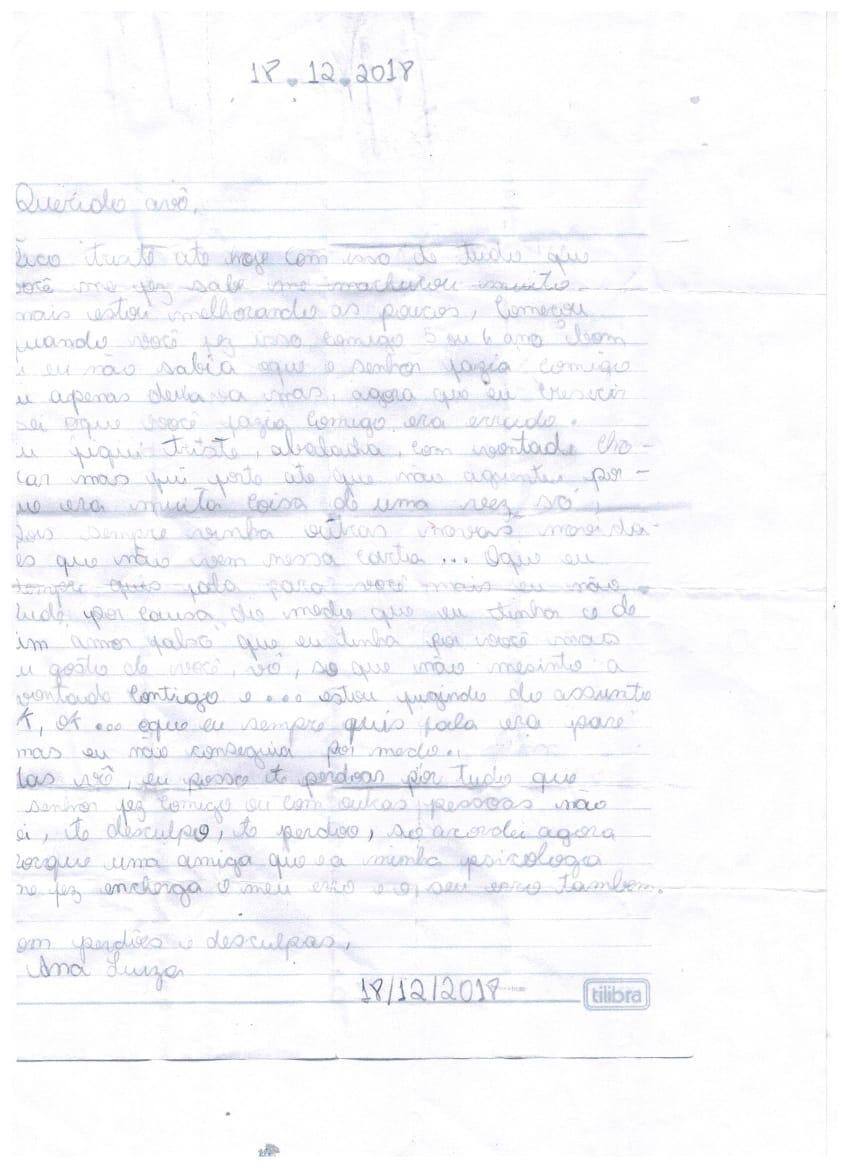 18.12.2018
Querido avô,
fico triste ate hoje com isso de tudo que
você me fez sabe me machucou muito.
mais estou melhorando as poucos, Começou
quando você fez isso comigo 5 ou 6 ano
eu não sabia oque o senhor fazia comigo
u apenas deixava mas, agora que eu cresicir
sei oque você fazia comigo era errado.
u fiquei triste, abalada, com vontade cho-
rar mas fui forte ate que não aguentei por-
ue era muita coisa de uma veez só,
pois sempre vinha outras novas novida-
es que não vem nessa carta... Oque eu
sempre quis fala para você mais eu não
pude por causa do medo que eu tinha e de
um amor falso que eu tinha por você mas
u gosto de você, vô, so que não mesinto a
vontade contigo e... estou fugindo do assunto
k, ok... oque eu sempre quis fala era pare
mas eu não conseguia por medo..
Mas vô, eu posso te perdoar por tudo que
senhor fez comigo ou com outras pessoas não
ei, te desculpo, te perdoo, so acordei agora
porque uma amiga que e a minha psicologa
me fez encherga o meu erro e o seu erro tambem.
om perdões e desculpas,
Ana Luiza
18/12/2018
tilibra